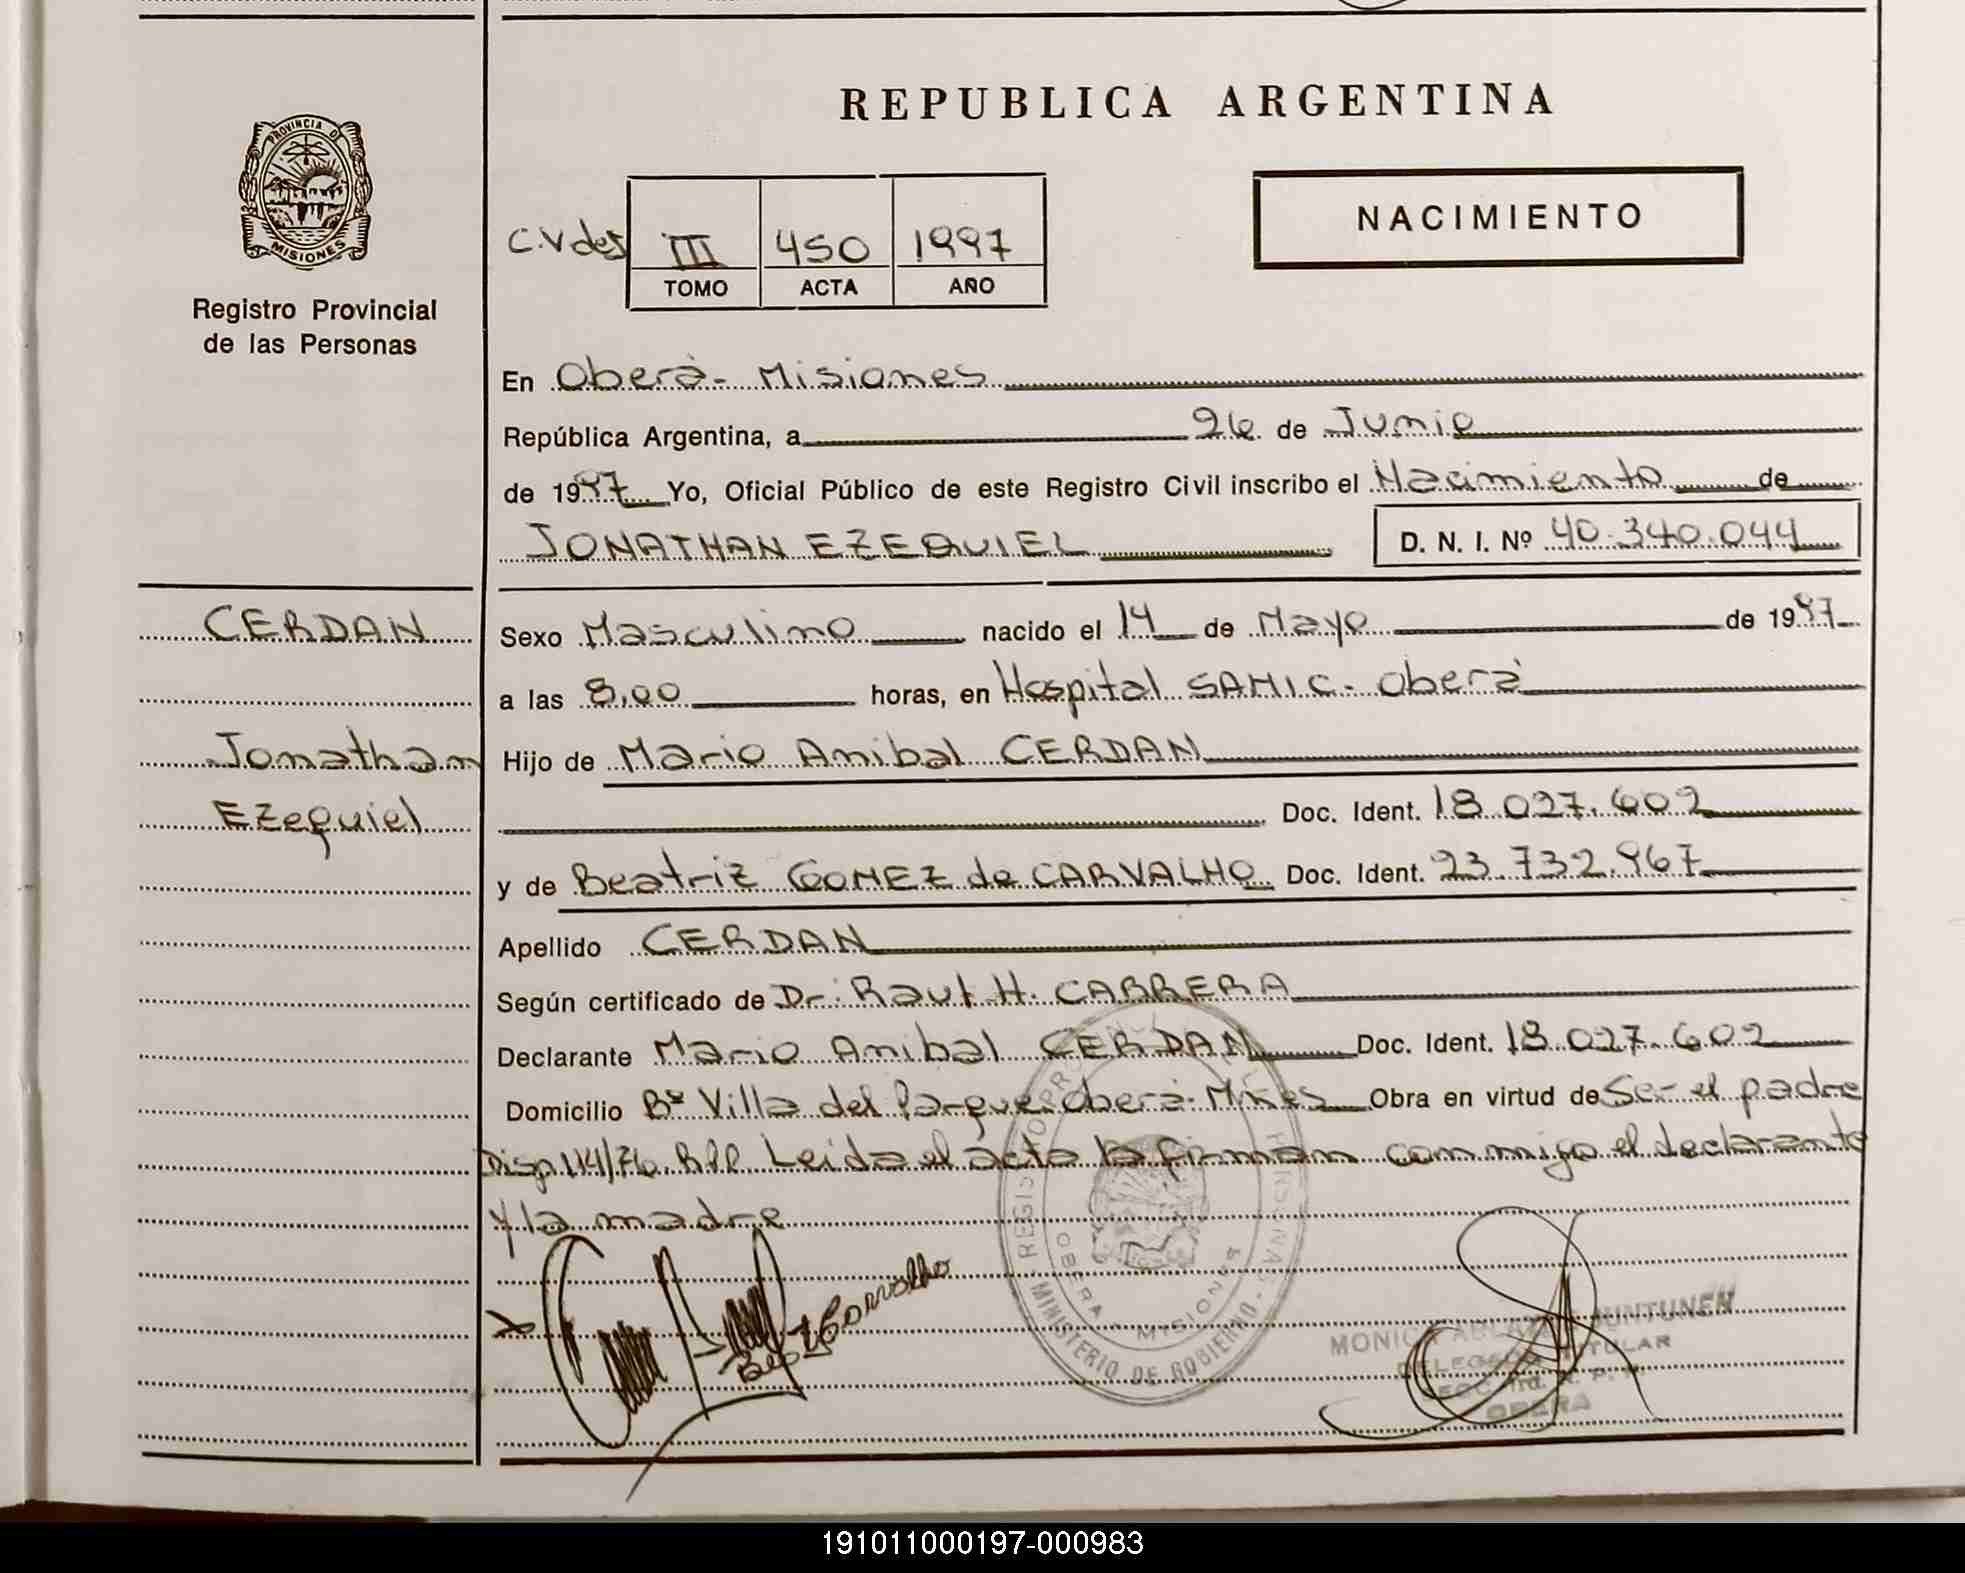 REPUBLICA ARGENTINA
PROVINCIA DE
MISIONES
Registro Provincial
de las Personas
NACIMIENTO
C.V des III 450 1997
TOMO ACTA AÑO
En Oberà - Misiones
República Argentina, a 26 de Junio
de 1997 Yo, Oficial Público de este Registro Civil inscribo el Nacimiento de
JONATHAN EZEQUIEL D. N. I. Nº 40.340.044
CERDAN
Jonathan
Ezequiel
Sexo Masculino nacido el 14 de Mayo de 1997
a las 8,00 horas, en Hospital SAMIC - Oberà
Hijo de Mario Anibal CERDAN
Doc. Ident. 18.027.602
y de Beatriz GOMEZ de CARVALHO Doc. Ident. 23.732.967
Apellido CERDAN
Según certificado de Dr. Raul H. CABRERA
Declarante Mario Anibal CERDAN Doc. Ident. 18.027.602
Domicilio Bº Villa del Parque Oberà - Mnes Obra en virtud de Ser el padre
Disp 114/76. RPP Leida el acta la firman conmigo el declarante
y la madre
Carvalho
OBERA MISIONES
MINISTERIO DE GOBIERNO
MONICA JUNTUNEN
TITULAR
OBERA
191011000197-000983